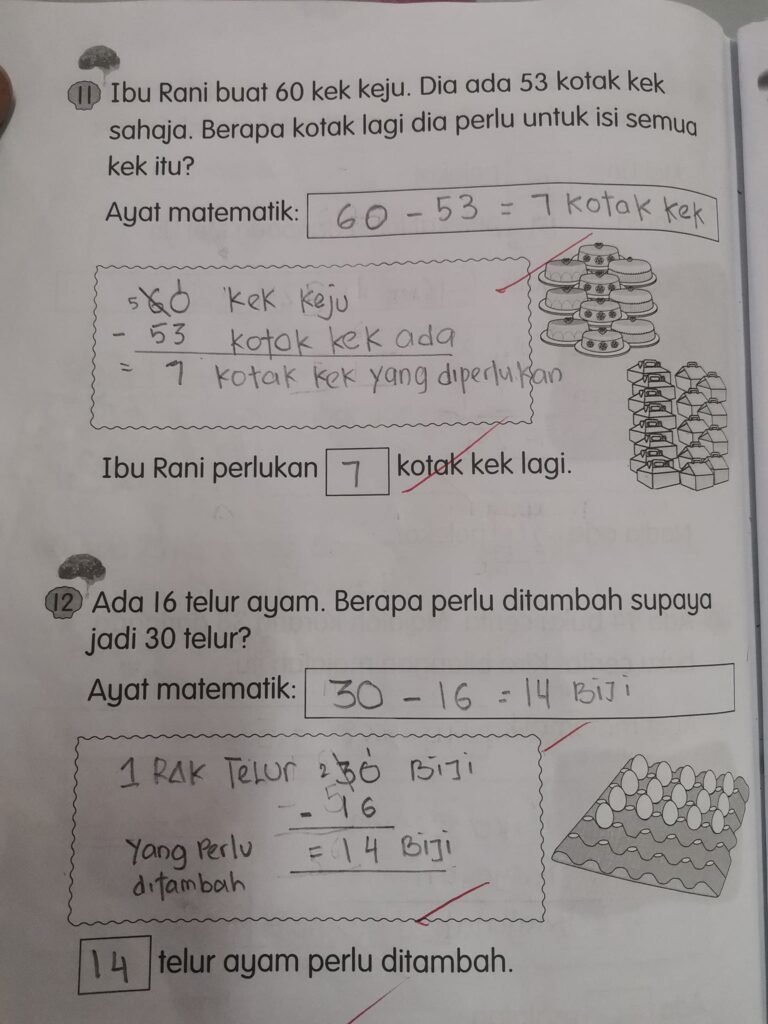 11 Ibu Rani buat 60 kek keju. Dia ada 53 kotak kek
sahaja. Berapa kotak lagi dia perlu untuk isi semua
kek itu?
Ayat matematik: 60 - 53 = 7 kotak kek
5 60 kek keju
- 53 kotak kek ada
= 7 kotak kek yang diperlukan
Ibu Rani perlukan 7 kotak kek lagi.
12 Ada 16 telur ayam. Berapa perlu ditambah supaya
jadi 30 telur?
Ayat matematik: 30 - 16 = 14 BIJI
1 RAK TELUR 2 30 BIJI
- 16
Yang Perlu = 14 BIJI
ditambah
14 telur ayam perlu ditambah.